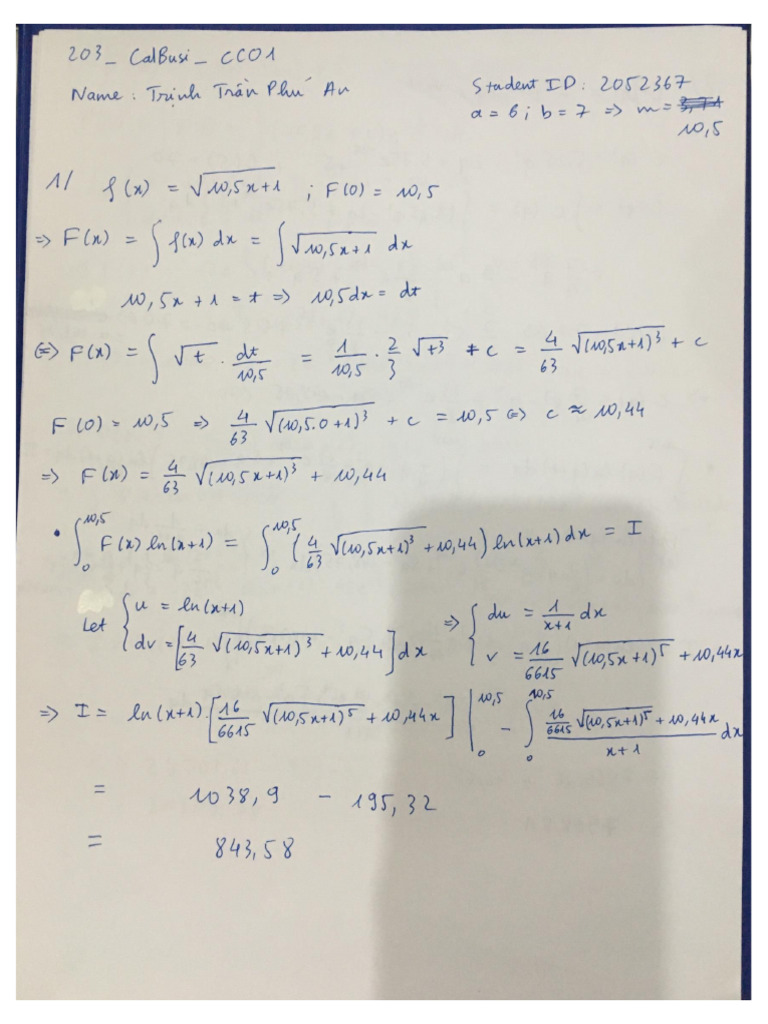 203_ CalBusi_ CC01
Name : Trịnh Trần Phú An
Student ID : 2052367
a = 6 ; b = 7 => m =
10,5
1/ f(x) = √(10,5x+1) ; F(0) = 10,5
=> F(x) = ∫ f(x) dx = ∫ √(10,5x+1) dx
10,5x + 1 = t => 10,5dx = dt
(=> F(x) = ∫ √t . dt/10,5 = 1/10,5 . 2/3 √t3 + c = 4/63 √(10,5x+1)³ + c
F(0) = 10,5 => 4/63 √(10,5.0+1)³ + c = 10,5 => c ≈ 10,44
=> F(x) = 4/63 √(10,5x+1)³ + 10,44
• ∫₀^10,5 F(x) ln(x+1) = ∫₀^10,5 (4/63 √(10,5x+1)³ + 10,44) ln(x+1) dx = I
Let { u = ln(x+1) => { du = 1/(x+1) dx
dv = [4/63 √(10,5x+1)³ + 10,44] dx v = 16/6615 √(10,5x+1)⁵ + 10,44x
=> I = ln(x+1).[16/6615 √(10,5x+1)⁵ + 10,44x] |₀^10,5 - ∫₀^10,5 (16/6615 √(10,5x+1)⁵ + 10,44x)/(x+1) dx
= 1038,9 - 195,32
= 843,58